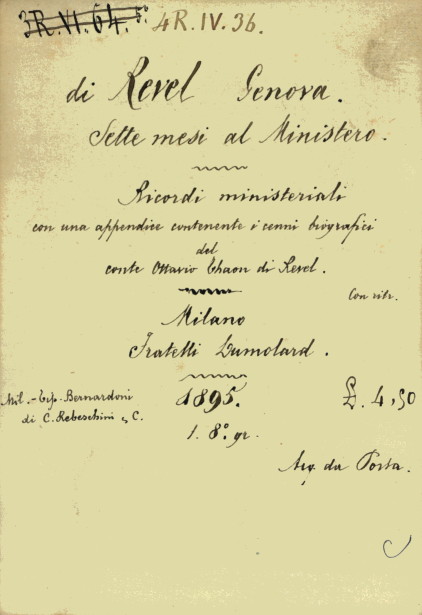 3R.VI.64.5° 4R.IV.36.
di Revel Genova.
Sette mesi al Ministero.
Ricordi ministeriali
con una appendice contenente i cenni biografici
del
conte Ottavio Thaon di Revel.
Con ritr.
Milano
Fratelli Dumolard.
Mil. - Tip. Bernardoni
di C. Rebeschini e C.
1895.
£. 4,50
1. 8°. gr.
Acq. da Porta.